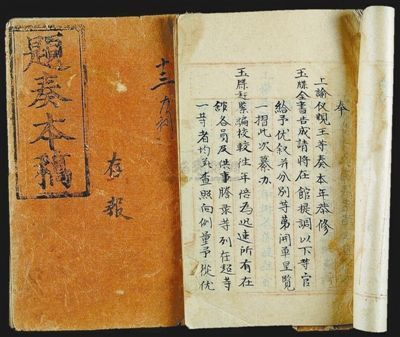 奉
上諭仪親王等奏本年恭修
玉牒全書告成請將在館提調以下等官
給予优叙并分別等第開單呈覽
一摺此次纂办
玉牒赶緊編校較往年倍為迅速所有在
館各員及供事謄录等列在超等
一等者均著查照向例量予從优
十三
存報
題奏本稿